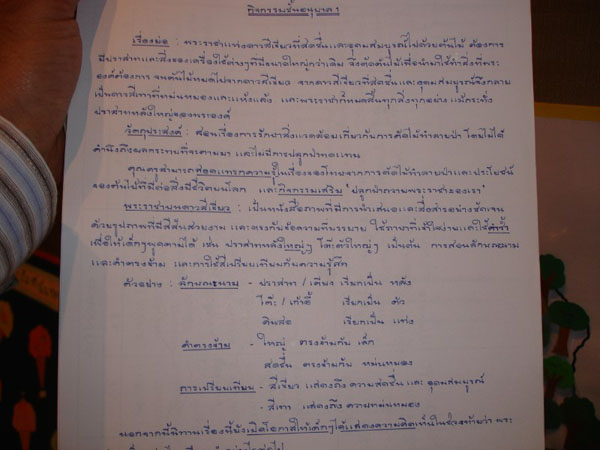 กิจกรรมชั้นอนุบาล 1
เรื่องย่อ : พระราชาแห่งดาวสีเขียวที่สดชื่นและอุดมสมบูรณ์ไปด้วยต้นไม้ ต้องการ
มีปราสาทและสิ่งของเครื่องใช้ต่างๆที่มีขนาดใหญ่กว่าเดิม จึงตัดต้นไม้เพื่อนำมาใช้ทำสิ่งที่พระ
องค์ต้องการ จนต้นไม้หมดไปจากดาวสีเขียว จากดาวสีเขียวที่สดชื่นและอุดมสมบูรณ์จึงกลาย
เป็นดาวสีเทาที่หม่นหมองและแห้งแล้ง และพระราชาก็หมดสิ้นทุกสิ่งทุกอย่าง แม้กระทั่ง
ปราสาทหลังใหญ่ของพระองค์
วัตถุประสงค์ : สอนเรื่องการรักษาสิ่งแวดล้อมเกี่ยวกับการตัดไม้ทำลายป่า โดยไม่ได้
คำนึงถึงผลกระทบที่จะตามมา และไม่มีการปลูกป่าทดแทน
คุณครูสามารถสอดแทรกความรู้ในเรื่องของโทษจากการตัดไม้ทำลายป่าและประโยชน์
ของต้นไม้ที่มีต่อสิ่งมีชีวิตบนโลก และกิจกรรมเสริม "ปลูกป่าถวายพระราชาของเรา"
พระราชาบนดาวสีเขียว : เป็นหนังสือภาพที่มีการนำเสนอและสื่อสารอย่างชัดเจน
ด้วยรูปภาพที่มีสีสันสวยงาม และตรงกับข้อความที่บรรยาย ใช้ภาษาที่เข้าใจง่ายและใช้คำซ้ำ
เพื่อให้เด็กๆพูดตามได้ เช่น ปราสาทหลังใหญ่ๆ โต๊ะตัวใหญ่ๆ เป็นต้น การสอนลักษณนาม
และคำตรงข้าม และการใช้สีเปรียบเทียบกับความรู้สึก
ตัวอย่าง : ลักษณะนาม - ปราสาท / เตียง เรียกเป็น หลัง
โต๊ะ / เก้าอี้ เรียกเป็น ตัว
ดินสอ เรียกเป็น แท่ง
คำตรงข้าม - ใหญ่ ตรงข้ามกับ เล็ก
สดชื่น ตรงข้ามกับ หม่นหมอง
การเปรียบเทียบ - สีเขียว แสดงถึง ความสดชื่น และ อุดมสมบูรณ์
- สีเทา แสดงถึง ความหม่นหมอง
นอกจากนี้นิทานเรื่องนี้ยังเปิดโอกาสให้เด็กๆได้แสดงความคิดเห็นในช่วงท้ายว่า พระ